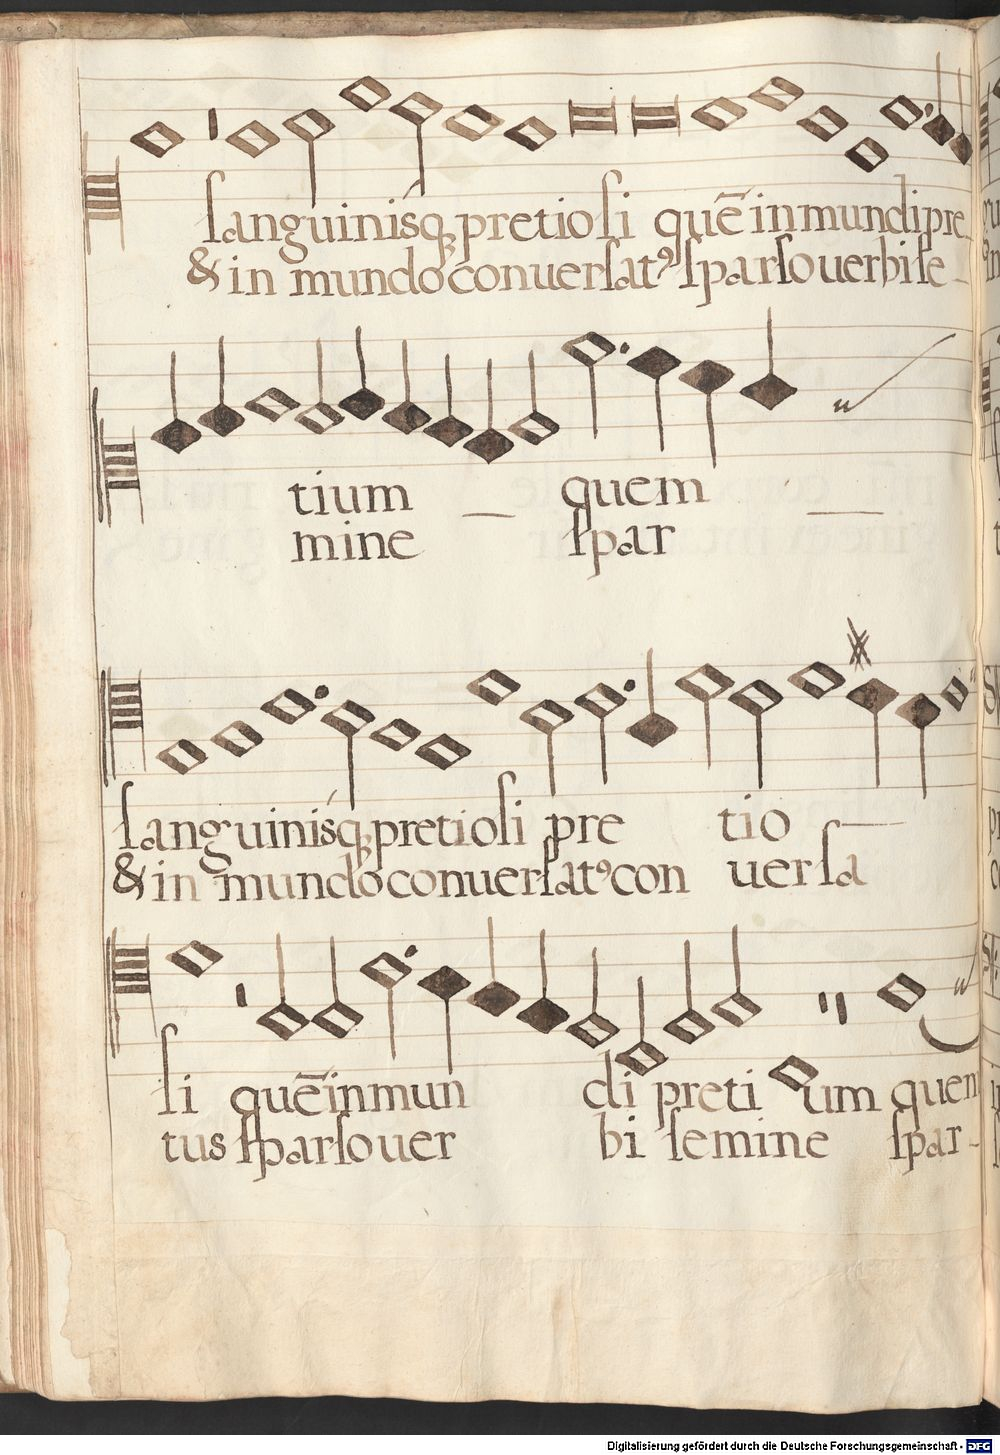 sanguinisq3 pretiosi quē in mundi pre
& in mundo conuersat9 sparso uerbi se -
tium quem
mine spar
sanguinisq3 pretiosi pre tio
& in mundo conuersat9 con uersa
si quē in mun di preti um quem
tus sparso uer bi semine spar-
Digitalisierung gefördert durch die Deutsche Forschungsgemeinschaft - DFG